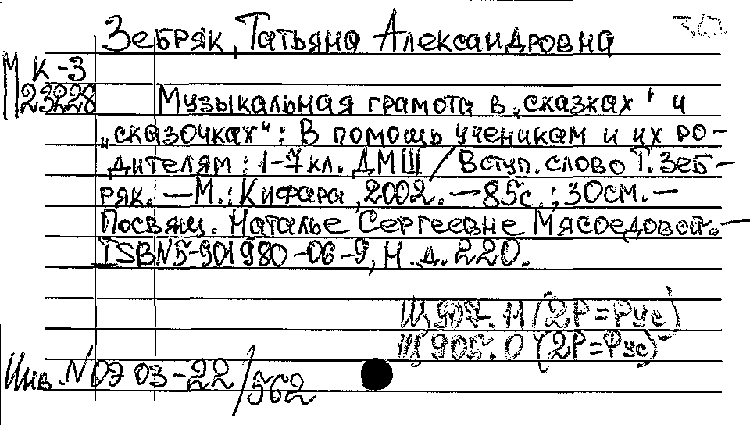 Зебряк, Татьяна Александровна
М К-3
23228
Музыкальная грамота в „сказках" и
„сказочках": В помощь ученикам и их ро-
дителям: 1-7 кл. ДМШ / Вступ. слово Т. Зеб-
ряк. — М.: Кифара, 2002. — 85с.; 30см. —
Посвящ. Наталье Сергеевне Мясоедовой. —
ISBN5-901980-06-9, Н. д. 220.
Щ907.11 (2Р=Рус)
Щ905.0 (2Р=Рус)
Инв. N 07 03-22/562